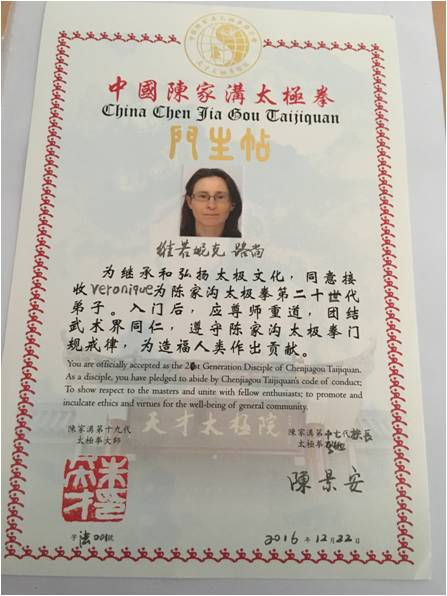 中國陳家溝太極拳
China Chen Jia Gou Taijiquan
門生帖
維若妮克 路尚
为继承和弘扬太极文化，同意接
收veronique为陈家沟太极拳第二十世代
弟子。入门后，应尊师重道，团结
武术界同仁，遵守陈家沟太极拳门
规戒律，为造福人类作出贡献。
You are officially accepted as the 21st Generation Disciple of Chenjiagou Taijiquan.
As a disciple, you have pledged to abide by Chenjiagou Taijiquan's code of conduct;
To show respect to the masters and unite with fellow enthusiasts; to promote and
inculcate ethics and virtues for the well-being of general community.
天才太極院
陈家溝第十九代
太極拳大師
陈家溝第十七代
太極拳
陳景安
字法001號
2016年12月22日